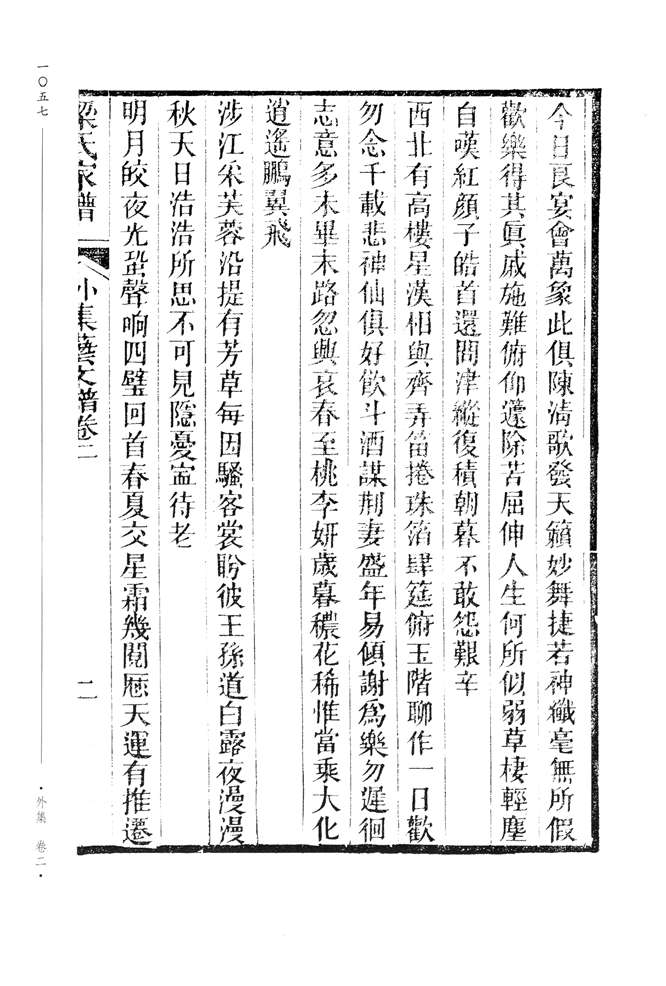 今日良宴會萬象此俱陳淸歌發天籟妙舞捷若神纖毫無所假
歡樂得其眞戚施難俯仰籧除苦屈伸人生何所似弱草棲輕塵
自嘆紅顔子皓首還問津縱復積朝暮不敢怨艱辛
西北有高樓星漢相與齊弄笛捲珠箔肆筵俯玉階聊作一日歡
勿念千載悲神仙俱好飮斗酒謀荆妻盛年易傾謝爲樂勿遲徊
志意多未畢末路忽興哀春至桃李妍歲暮穠花稀惟當乘大化
逍遙鵬翼飛
涉江采芙蓉沿提有芳草每因騷客裳盼彼王孫道白露夜漫漫
秋天日浩浩所思不可見隱憂寍待老
明月皎夜光蛩聲响四壁回首春夏交星霜幾閱厯天運有推遷
梁氏家譜
外集藝文譜卷二
二
一〇五七
·外集 卷二·